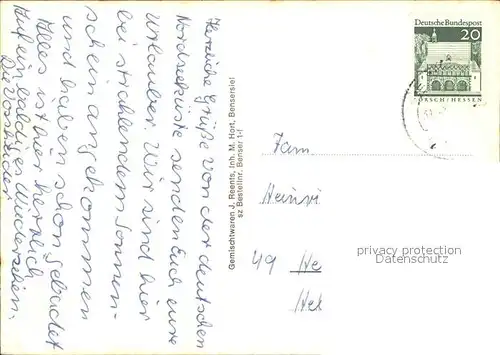 Herzliche Grüße von der deutschen
Nordseeküste senden Euch eure
Urlauber. Wir sind hier
bei strahlendem Sonnen-
schein angekommen
und haben schon gebadet
Alles ist hier herrlich
Auf ein baldiges Wiedersehen.
Die
Gemischtwaren J. Reents, Inh. M. Hort, Bensersiel
sz Bestellnr. Benser 1-f
Deutsche Bundespost
20
LORSCH/HESSEN
Fam
Heinri
49 He
privacy protection
Datenschutz